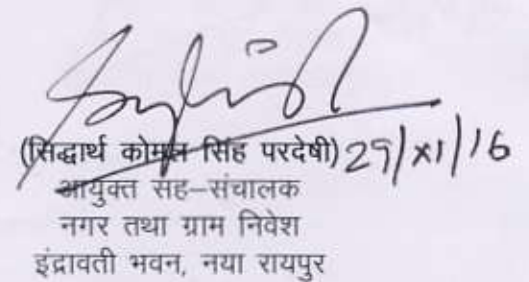 (सिद्धार्थ कोमल सिंह परदेषी) 29/XI/16
आयुक्त सह–संचालक
नगर तथा ग्राम निवेश
इंद्रावती भवन, नया रायपुर